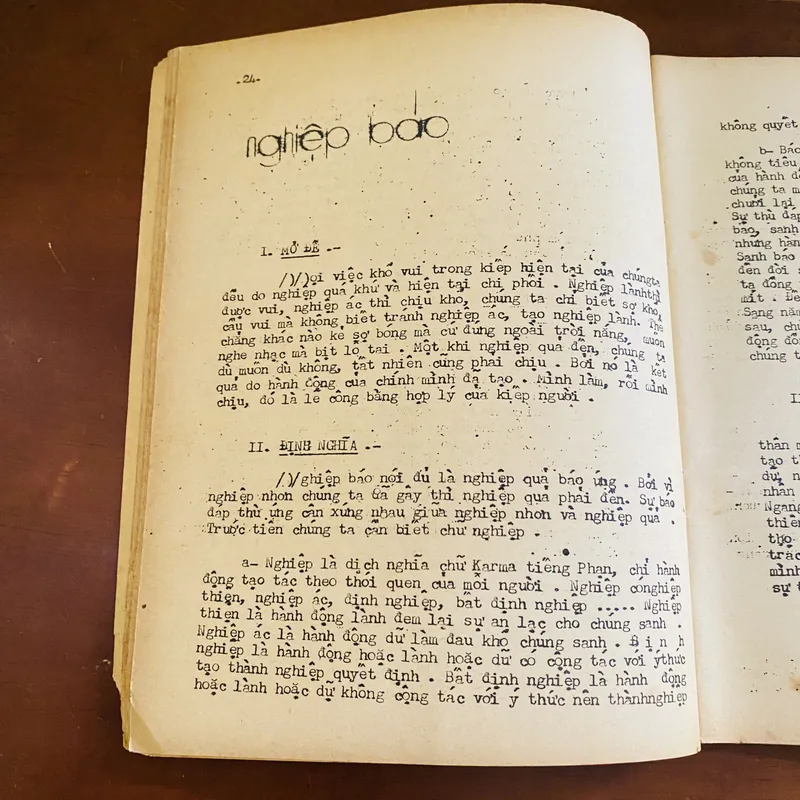 -24-
nghiệp báo
I. MỞ ĐỀ .--
Mọi việc khổ vui trong kiếp hiện tại của chúngta
đều do nghiệp quá khứ và hiện tại chi phối . Nghiệp lànhthì
được vui, nghiệp ác thì chịu khổ, chúng ta chỉ biết sợ khổ,
cầu vui mà không biết tránh nghiệp ác, tạo nghiệp lành. Thế
chẳng khác nào kẻ sợ bóng mà cứ đứng ngoài trời nắng, muốn
nghe nhạc mà bịt lỗ tai . Một khi nghiệp quả đến, chúng ta
dù muốn dù không, tất nhiên cũng phải chịu . Bởi nó là kết
quả do hành động của chính mình đã tạo . Mình làm, rồi mình
chịu, đó là lẽ công bằng hợp lý của kiếp người .
II. ĐỊNH NGHĨA .--
Nghiệp báo nói đủ là nghiệp quả báo ứng . Bởi vì
nghiệp nhơn chúng ta đã gây thì nghiệp quả phải đến. Sự báo
đáp thù ứng cân xứng nhau giữa nghiệp nhơn và nghiệp quả .
Trước tiên chúng ta cần biết chữ nghiệp .
a- Nghiệp là dịch nghĩa chữ Karma tiếng Phạn, chỉ hành
động tạo tác theo thói quen của mỗi người . Nghiệp cónghiệp
thiện, nghiệp ác, định nghiệp, bất định nghiệp ..... Nghiệp
thiện là hành động lành đem lại sự an lạc cho chúng sanh .
Nghiệp ác là hành động dữ làm đau khổ chúng sanh . Đ ị n h
nghiệp là hành động hoặc lành hoặc dữ có cộng tác với ýthức
tạo thành nghiệp quyết định . Bất định nghiệp là hành động
hoặc lành hoặc dữ không cộng tác với ý thức nên thànhnghiệp
không quyết
b- Bác
không tiêu
của hành đ
chúng ta m
chuỗi lại
Sự thù đáp
báo, sanh
nhưng hàn
Sanh báo
đến đời s
ta động
mít . Đế
Sang năm
sau, chú
động đố
chúng t
II
thân m
tạo t
dữ, n
nhân
Ngang
thiê
thọ
trác
mình
sự t